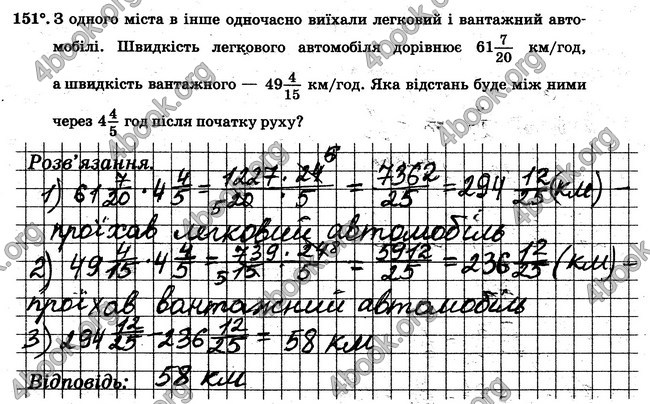 151°. З одного міста в інше одночасно виїхали легковий і вантажний авто-
мобілі. Швидкість легкового автомобіля дорівнює 61 7/20 км/год,
а швидкість вантажного — 49 4/15 км/год. Яка відстань буде між ними
через 4 4/5 год після початку руху?
Розв'язання.
1) 61 7/20 · 4 4/5 = 1227 · 24 6 / 5 20 · 5 = 7362/25 = 294 12/25 (км) –
проїхав легковий автомобіль
2) 49 4/15 · 4 4/5 = 739 · 24 8 / 5 15 · 5 = 5912/25 = 236 12/25 (км) –
проїхав вантажний автомобіль
3) 294 12/25 – 236 12/25 = 58 км
Відповідь: 58 км
4book.org